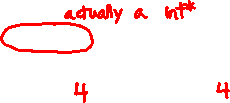 actually a int*
4 4